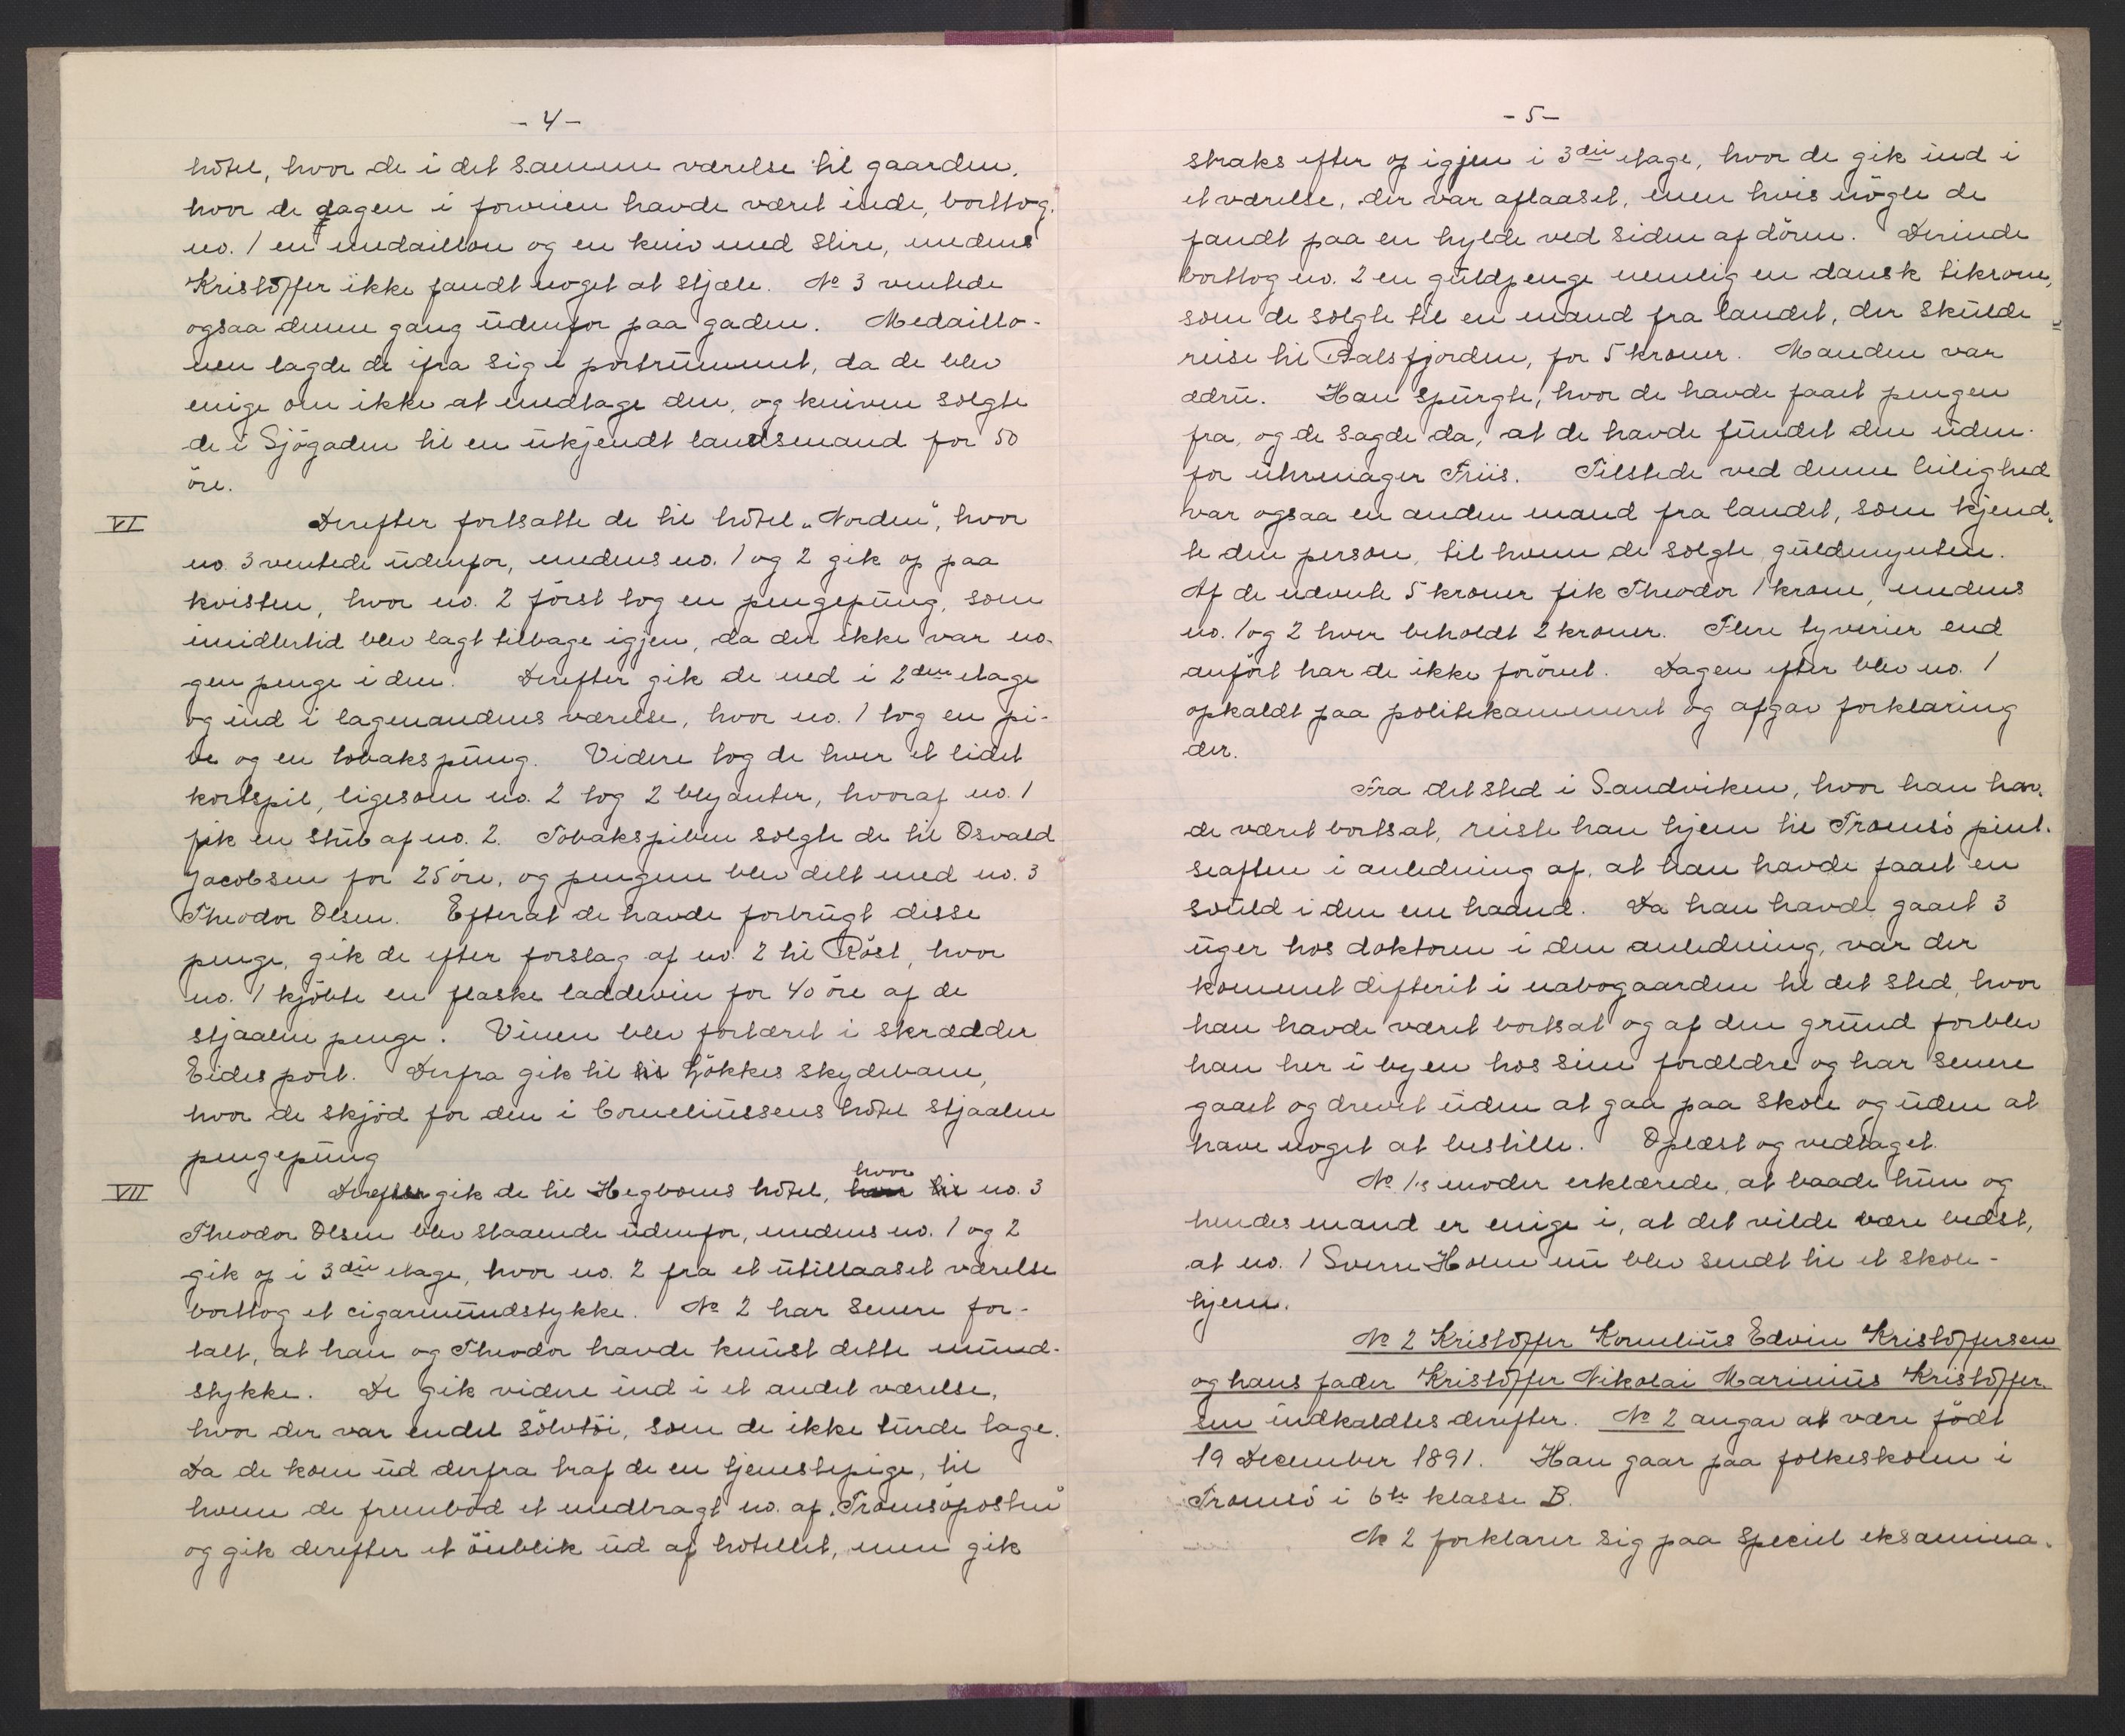 - 4 -
hôtel, hvor de i det samme værelse til gaarden,
hvor de dagen i forveien havde været inde, borttog
no. 1 en medaillon og en kniv med slire, medens
Kristoffer ikke fandt noget at stjæle. No 3 ventede
ogsaa denne gang udenfor paa gaden. Medaillo-
nen lagde de ifra sig i portrummet, da de blev
enige om ikke at medtage den, og kniven solgte
de i Sjögaden til en ukjendt landsmand for 50
öre.
VI Derefter fortsatte de til hôtel „Norden", hvor
no. 3 ventede udenfor, medens no. 1 og 2 gik op paa
kvisten, hvor no. 2 först tog en pengepung, som
imidlertid blev lagt tilbage igjen, da der ikke var no-
gen penge i den. Derefter gik de ned i 2den etage
og ind i lagmandens værelse, hvor no. 1 tog en pi-
be og en tobakspung. Videre tog de hver et lidet
kortspil, ligesom no. 2 tog 2 blyanter, hvoraf no. 1
fik en stub af no. 2. Tobakspiben solgte de til Osvald
Jacobsen for 25 öre, og pengene blev delt med no. 3
Theodor Olsen. Efterat de havde forbrugt disse
penge, gik de efter forslag af no. 2 til Röst, hvor
no. 1 kjöbte en flaske laddevin for 40 öre af de
stjaalne penge. Vinen blev fortæret i skrædder
Eides port. Derfra gik til til Gjökkes skydebane,
hvor de skjöd for den i Corneliussens hôtel stjaalne
pengepung
VII Derefter gik de til Hegboms hôtel, hvor no. 3
Theodor Olsen blev staaende udenfor, medens no. 1 og 2
gik op i 3die etage, hvor no. 2 fra et utillaaset værelse
borttog et cigarmundstykke. No 2 har senere for-
talt, at han og Theodor havde knust dette mund-
stykke. De gik videre ind i et andet værelse,
hvor der var endel sölvtöi, som de ikke turde tage.
Da de kom ud derfra traf de en tjenestepige, til
hvem de fremböd et medbragt no. af „Tromsöposten"
og gik derefter et öieblik ud af hotellet, men gik
- 5 -
straks efter op igjen i 3die etage, hvor de gik ind i
et værelse, der var aflaaset, men hvis nögle de
fandt paa en hylde ved siden af dören. Derinde
borttog no. 2 en guldpenge nemlig en dansk tikrone,
som de solgte til en mand fra landet, der skulde
reise til Balsfjorden, for 5 kroner. Manden var
ædru. Han spurgte, hvor de havde faaet pengen
fra, og de sagde da, at de havde fundet den uden-
for uhrmager Friis. Tilstede ved denne leilighed
var ogsaa en anden mand fra landet, som kjend-
te den person, til hvem de solgte guldmynten.
Af de nævnte 5 kroner fik Theodor 1 krone, medens
no. 1 og 2 hver beholdt 2 kroner. Flere tyverier end
anfört har de ikke forövet. Dagen efter blev no. 1
opkaldt paa politikammeret og afgav forklaring
der.
Fra det sted i Sandviken, hvor han hav-
de været bortsat, reiste han hjem til Tromsö pint-
seaften i anledning af, at han havde faaet en
svuld i den ene haand. Da han havde gaaet 3
uger hos doktoren i den anledning, var der
kommet difterit i nabogaarden til det sted, hvor
han havde været bortsat og af den grund forblev
han her i byen hos sine forældre og har senere
gaaet og drevet uden at gaa paa skole og uden at
have noget at bestille. Oplæst og vedtaget.
No 1's moder erklærede, at baade hun og
hendes mand er enige i, at det vilde være bedst,
at no. 1 Sverre Holm nu blev sendt til et skole-
hjem.
No 2 Kristoffer Kornelius Edvin Kristoffersen
og hans fader Kristoffer Nikolai Marinius Kristoffer-
sen indkaldtes derefter. No 2 angav at være födt
19 December 1891. Han gaar paa folkeskolen i
Tromsö i 6te klasse B.
No 2 forklarer sig paa speciel eksamina-